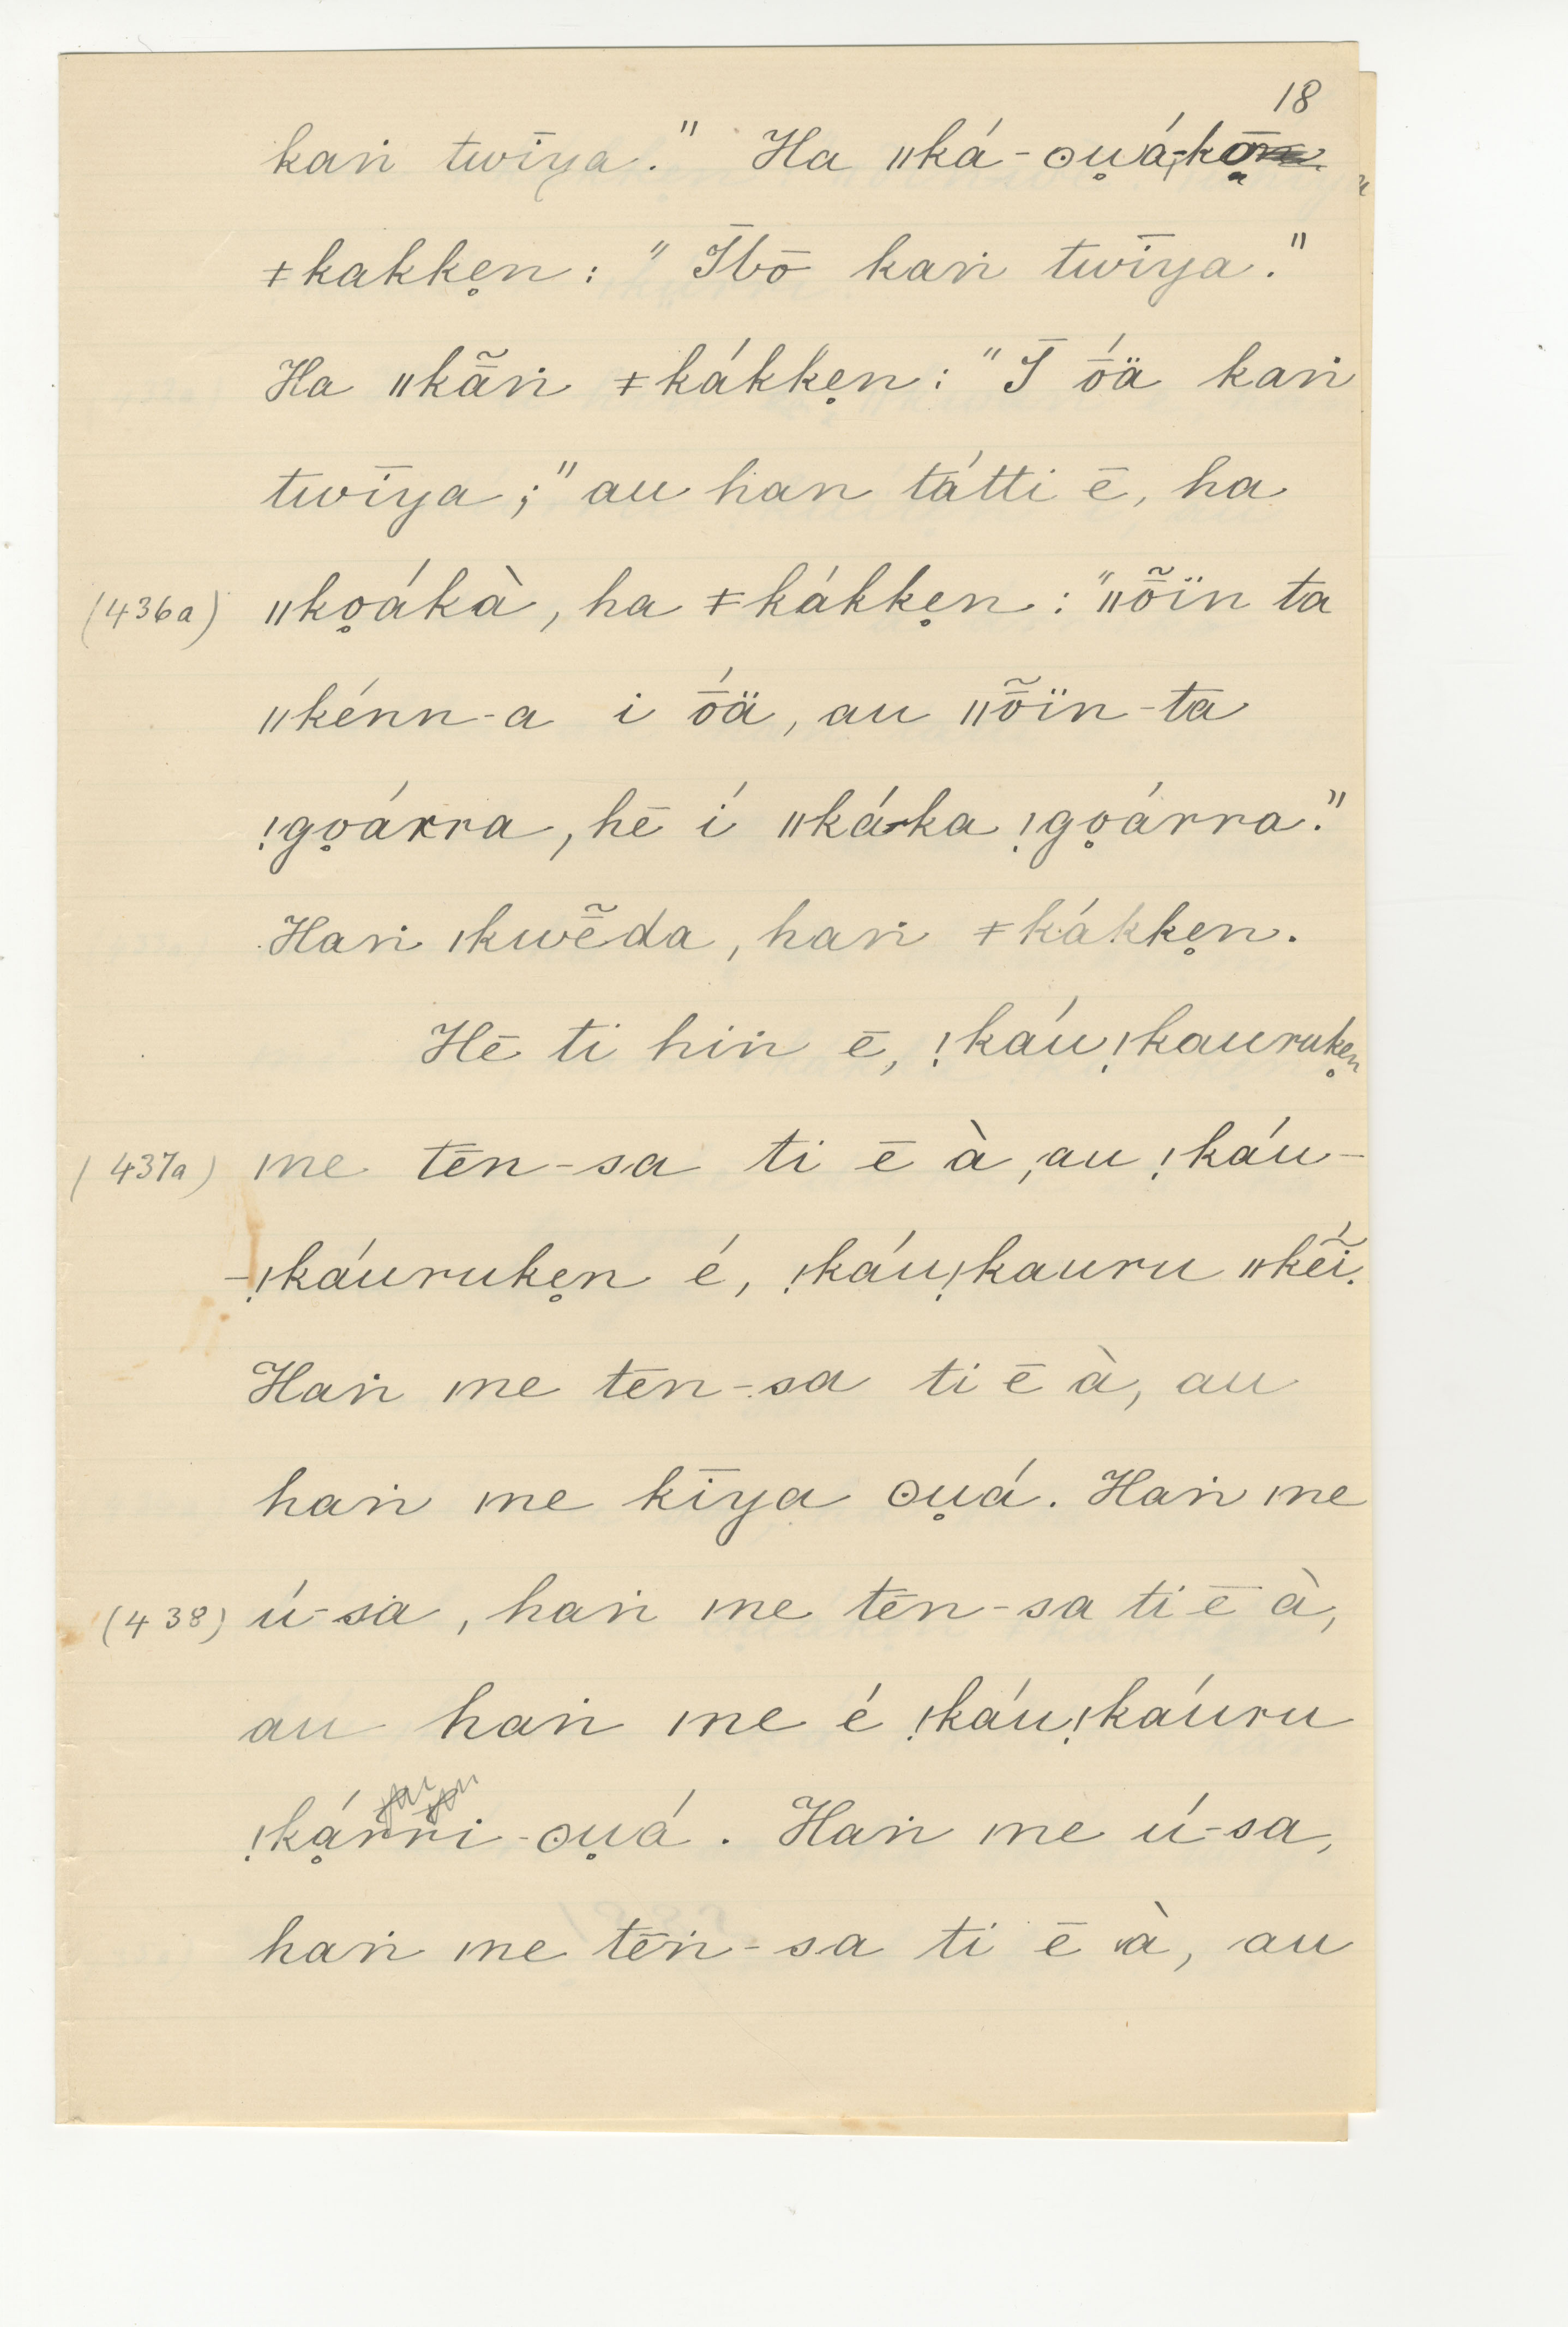 18
kaṅ twīya." Ha ǁká-ʘu̥á-ko̤
ǂkakke̥n: "Ībō kaṅ twīya."
Ha ǁkā̃ṅ ǂkákke̥n: "Ī ṓä kaṅ
twīya;" au han tátti ē, ha
(436a) ǁko̥ákà, ha ǂkákke̥n: "ǁō̃ïn ta
ǁkénn-a i ṓä, au ǁō̃ïn-ta
!go̥árra, hē í ǁká-ka !go̥árra."
Haṅ ǀkwē̃da, haṅ ǂkákke̥n.
Hē ti hiṅ ē, !káu!kauruke̥n
(437a) ǀne tēn-sa ti ē à, au !káu-
-!káuruke̥n é, !káu!kauru ǁkẽ́i.
Haṅ ǀne tēn-sa ti ē à, au
haṅ ǀne kīya ʘu̥á. Haṅ ǀne
(438) ú-sa, haṅ ǀne tēn-sa ti ē à,
au haṅ ǀne é !káu!káuru
!kḁ́rri-ʘu̥á. Haṅ ǀne ú-sa,
haṅ ǀne tēṅ-sa ti ē à, au